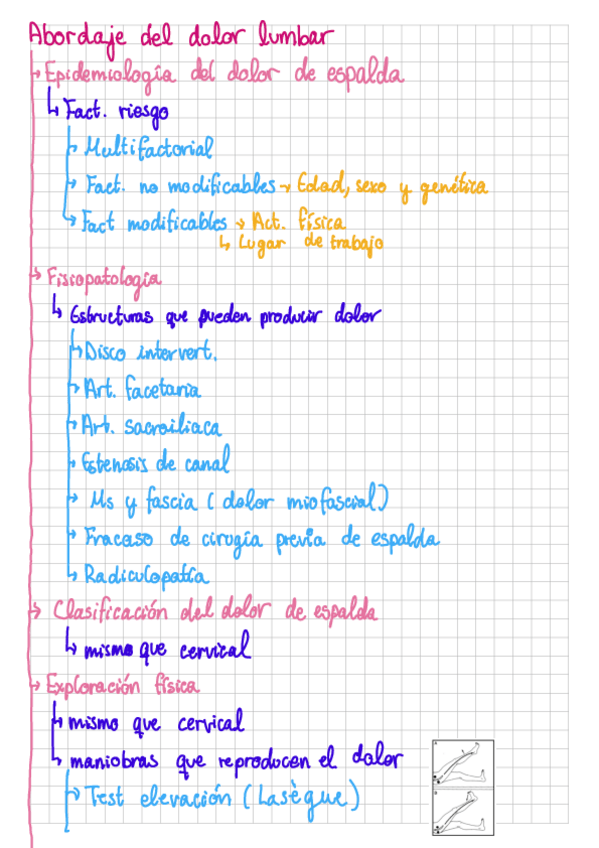 Abordaje del dolor lumbar
Epidemiología del dolor de espalda
Fact. riesgo
Multifactorial
Fact. no modificables → Edad, sexo y genética
Fact modificables → Act. física
Lugar de trabajo
Fisiopatología
Estructuras que pueden producir dolor
Disco intervert.
Art. facetaria
Art. sacroiliaca
Estenosis de canal
Ms y fascia (dolor miofascial)
Fracaso de cirugía previa de espalda
Radiculopatía
Clasificación del dolor de espalda
mismo que cervical
Exploración física
mismo que cervical
maniobras que reproducen el dolor
Test elevación (Lasègue)